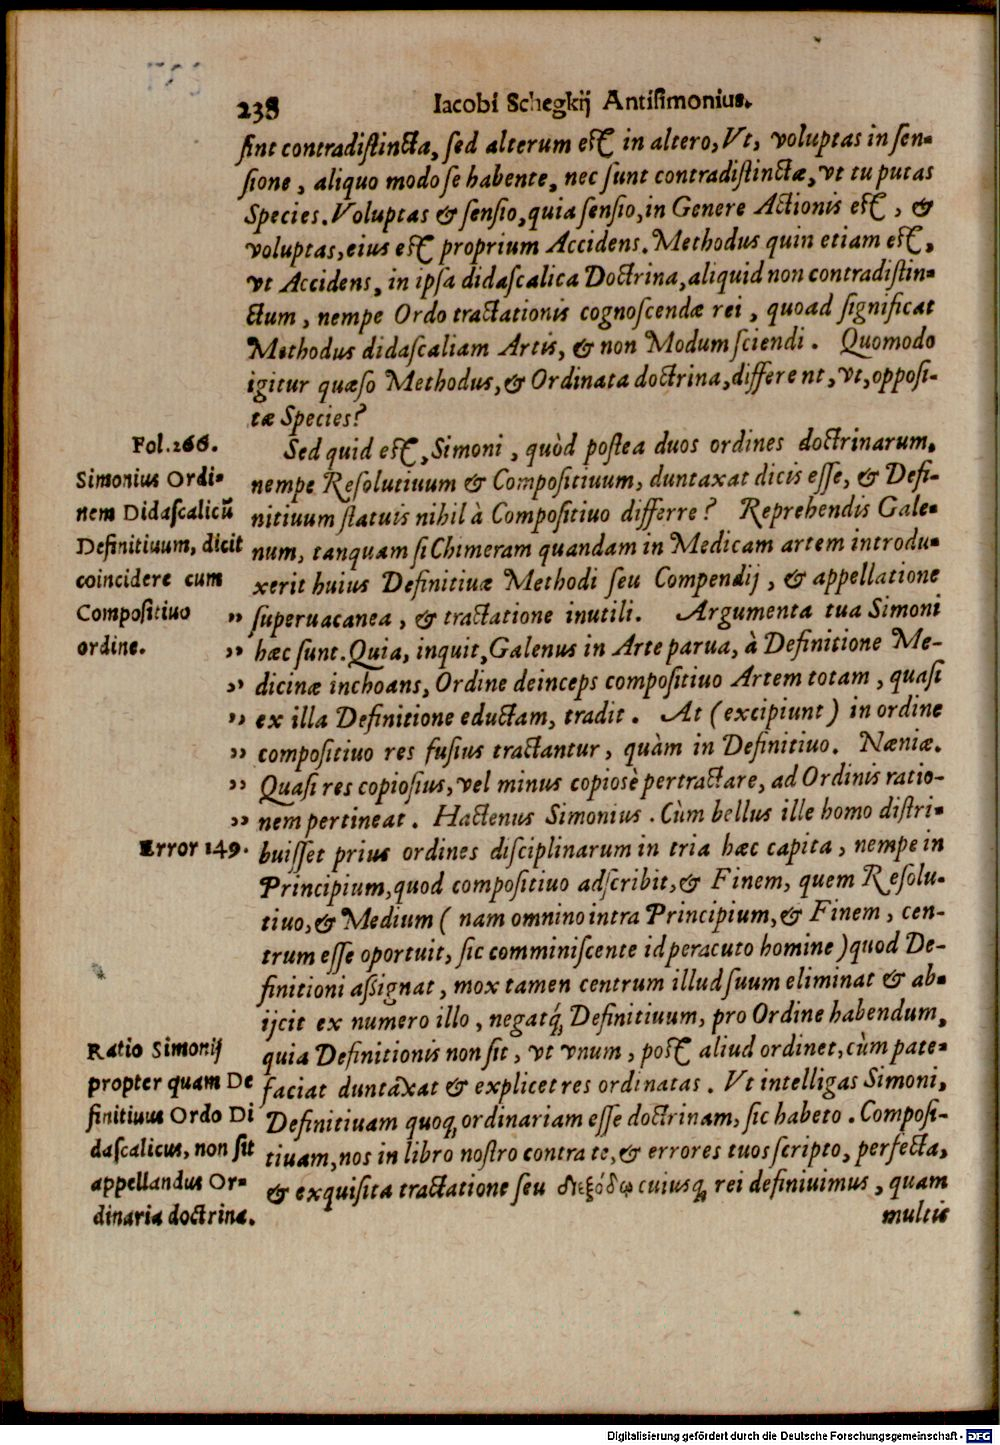 238 Iacobi Schegkij Antisimonius.
sint contradistincta, sed alterum est in altero, Vt, voluptas in sen-
sione, aliquo modo se habente, nec sunt contradistinctæ, vt tu putas
Species. Voluptas & sensio, quia sensio, in Genere Actionis est, &
voluptas, eius est proprium Accidens. Methodus quin etiam est,
vt Accidens, in ipsa didascalica Doctrina, aliquid non contradistin-
ctum, nempe Ordo tractationis cognoscendæ rei, quoad significat
Methodus didascaliam Artis, & non Modum sciendi. Quomodo
igitur quæso Methodus, & Ordinata doctrina, differe nt, vt, opposi-
tæ Species?
Fol. 266.
Simonius Ordi-
nem Didascalicũ
Definitiuum, dicit
coincidere cum
Compositiuo
ordine.
Sed quid est, Simoni, quòd postea duos ordines doctrinarum,
nempe Resolutiuum & Compositiuum, duntaxat dicis esse, & Defi-
nitiuum statuis nihil à Compositiuo differre? Reprehendis Gale-
num, tanquam si Chimeram quandam in Medicam artem introdu-
xerit huius Definitiuæ Methodi seu Compendij, & appellatione
,, superuacanea, & tractatione inutili. Argumenta tua Simoni
,, hæc sunt. Quia, inquit, Galenus in Arte parua, à Definitione Me-
,, dicinæ inchoans, Ordine deinceps compositiuo Artem totam, quasi
,, ex illa Definitione eductam, tradit. At (excipiunt) in ordine
,, compositiuo res fusius tractantur, quàm in Definitiuo. Næniæ.
,, Quasi res copiosius, vel minus copiosè pertractare, ad Ordinis ratio-
,, nem pertineat. Hactenus Simonius. Cùm bellus ille homo distri-
Error 149.
buisset prius ordines disciplinarum in tria hæc capita, nempe in
Principium, quod compositiuo adscribit, & Finem, quem Resolu-
tiuo, & Medium (nam omnino intra Principium, & Finem, cen-
trum esse oportuit, sic comminiscente id peracuto homine) quod De-
finitioni assignat, mox tamen centrum illud suum eliminat & ab-
ijcit ex numero illo, negatq́; Definitiuum, pro Ordine habendum,
Ratio Simonij
propter quam De
finitiuus Ordo Di
dascalicus, non sit
appellandus Or-
dinaria doctrina.
quia Definitionis non sit, vt vnum, post aliud ordinet, cùm pate-
faciat duntaxat & explicet res ordinatas. Vt intelligas Simoni,
Definitiuam quoq; ordinariam esse doctrinam, sic habeto. Composi-
tiuam, nos in libro nostro contra te, & errores tuos scripto, perfecta,
& exquisita tractatione seu διεξόδῳ cuiusq; rei definiuimus, quam
multis
Digitalisierung gefördert durch die Deutsche Forschungsgemeinschaft - DFG